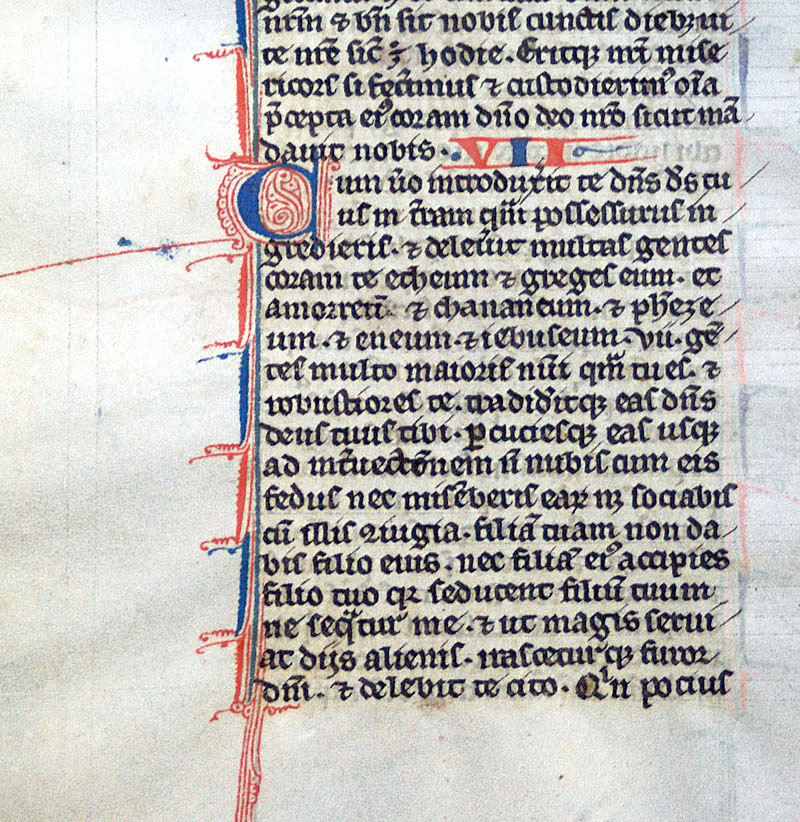 nr̄m ⁊ bn̄ sit nobis cunctis diebꝫ ui
te nr̄e sic̄ ē hodie. Eritqꝫ nr̄i mise
ricors si fec̄imus ⁊ custodierimꝰ om̄ia
p̄cepta eiꝰ coram dn̄o deo nr̄o sicut mā
dauit nobis. VII
Cum u̾o introdux̾it te dn̄s ds̄ tu
us in t̾ram qm̄ possessurus in
gredieris. ⁊ deleu̾it multas gentes
coram te etheum ⁊ gergeseum. et
amorreū. ⁊ chananeum. ⁊ pherze
um. ⁊ eueum. ⁊ iebuseum. vii. gē
tes multo maioris nūi qm̄ tu es. ⁊
robustiores te. tradid̾itqꝫ eas dn̄s
deus tuus tibi. ꝑcuciesqꝫ eas usqꝫ
ad int̾nectōnem n̄ inibis cum eis
fedus nec mis̾eberis eaꝝ nꝫ sociabis
cū illis ꝯiugia. filiā tuam non da
bis filio eius. nec filiā eiꝰ accipies
filio tuo qꝛ seducent filiū tuum
ne seqᷓtur me. ⁊ ut magis serui
at dijs alienis. nasceturqꝫ furor
dn̄i. ⁊ delebit te cito. Qn̄ pocius